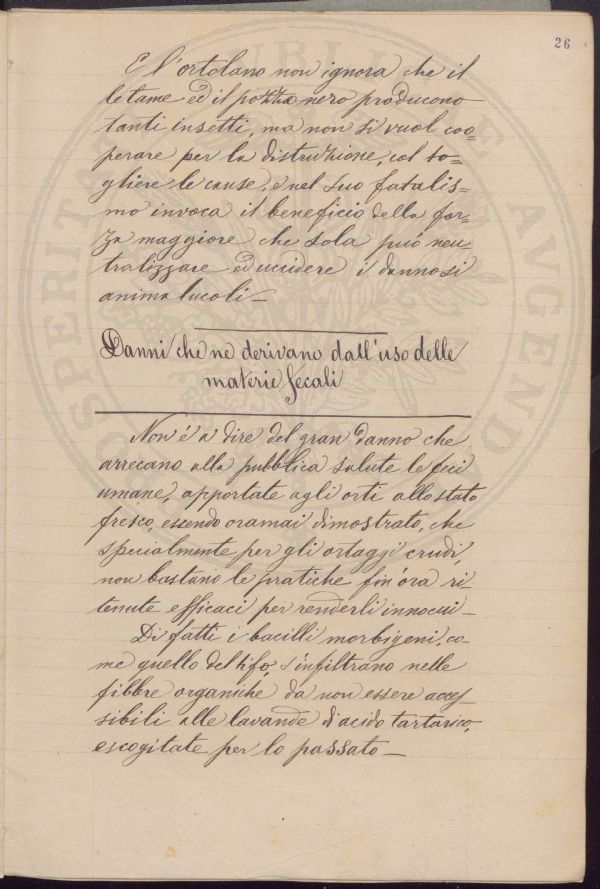 26
E l'ortolano non ignora che il
letame ed il pozzo nero producono
tanti insetti, ma non si vuol coo=
perare per la distruzione, col to=
gliere le cause, e nel suo fatalis=
mo invoca il beneficio della for=
za maggiore che sola può neu=
tralizzare ed uccidere i dannosi
animalucoli_
Danni che ne derivano dall'uso delle
materie fecali
Non é a dire del gran danno che
arrecano alla pubblica salute le feci
umane, apportate agli orti allo stato
fresco, essendo oramai dimostrato, che
specialmente per gli ortaggi crudi,
non bastano le pratiche fin'ora ri
tenute efficaci per renderli innocui_
Di fatti i bacilli morbigeni, co-
me quello del tifo, s'infiltrano nelle
fibbre organiche da non essere acces-
sibili alle lavande d'acido tartarico,
escogitate per lo passato_